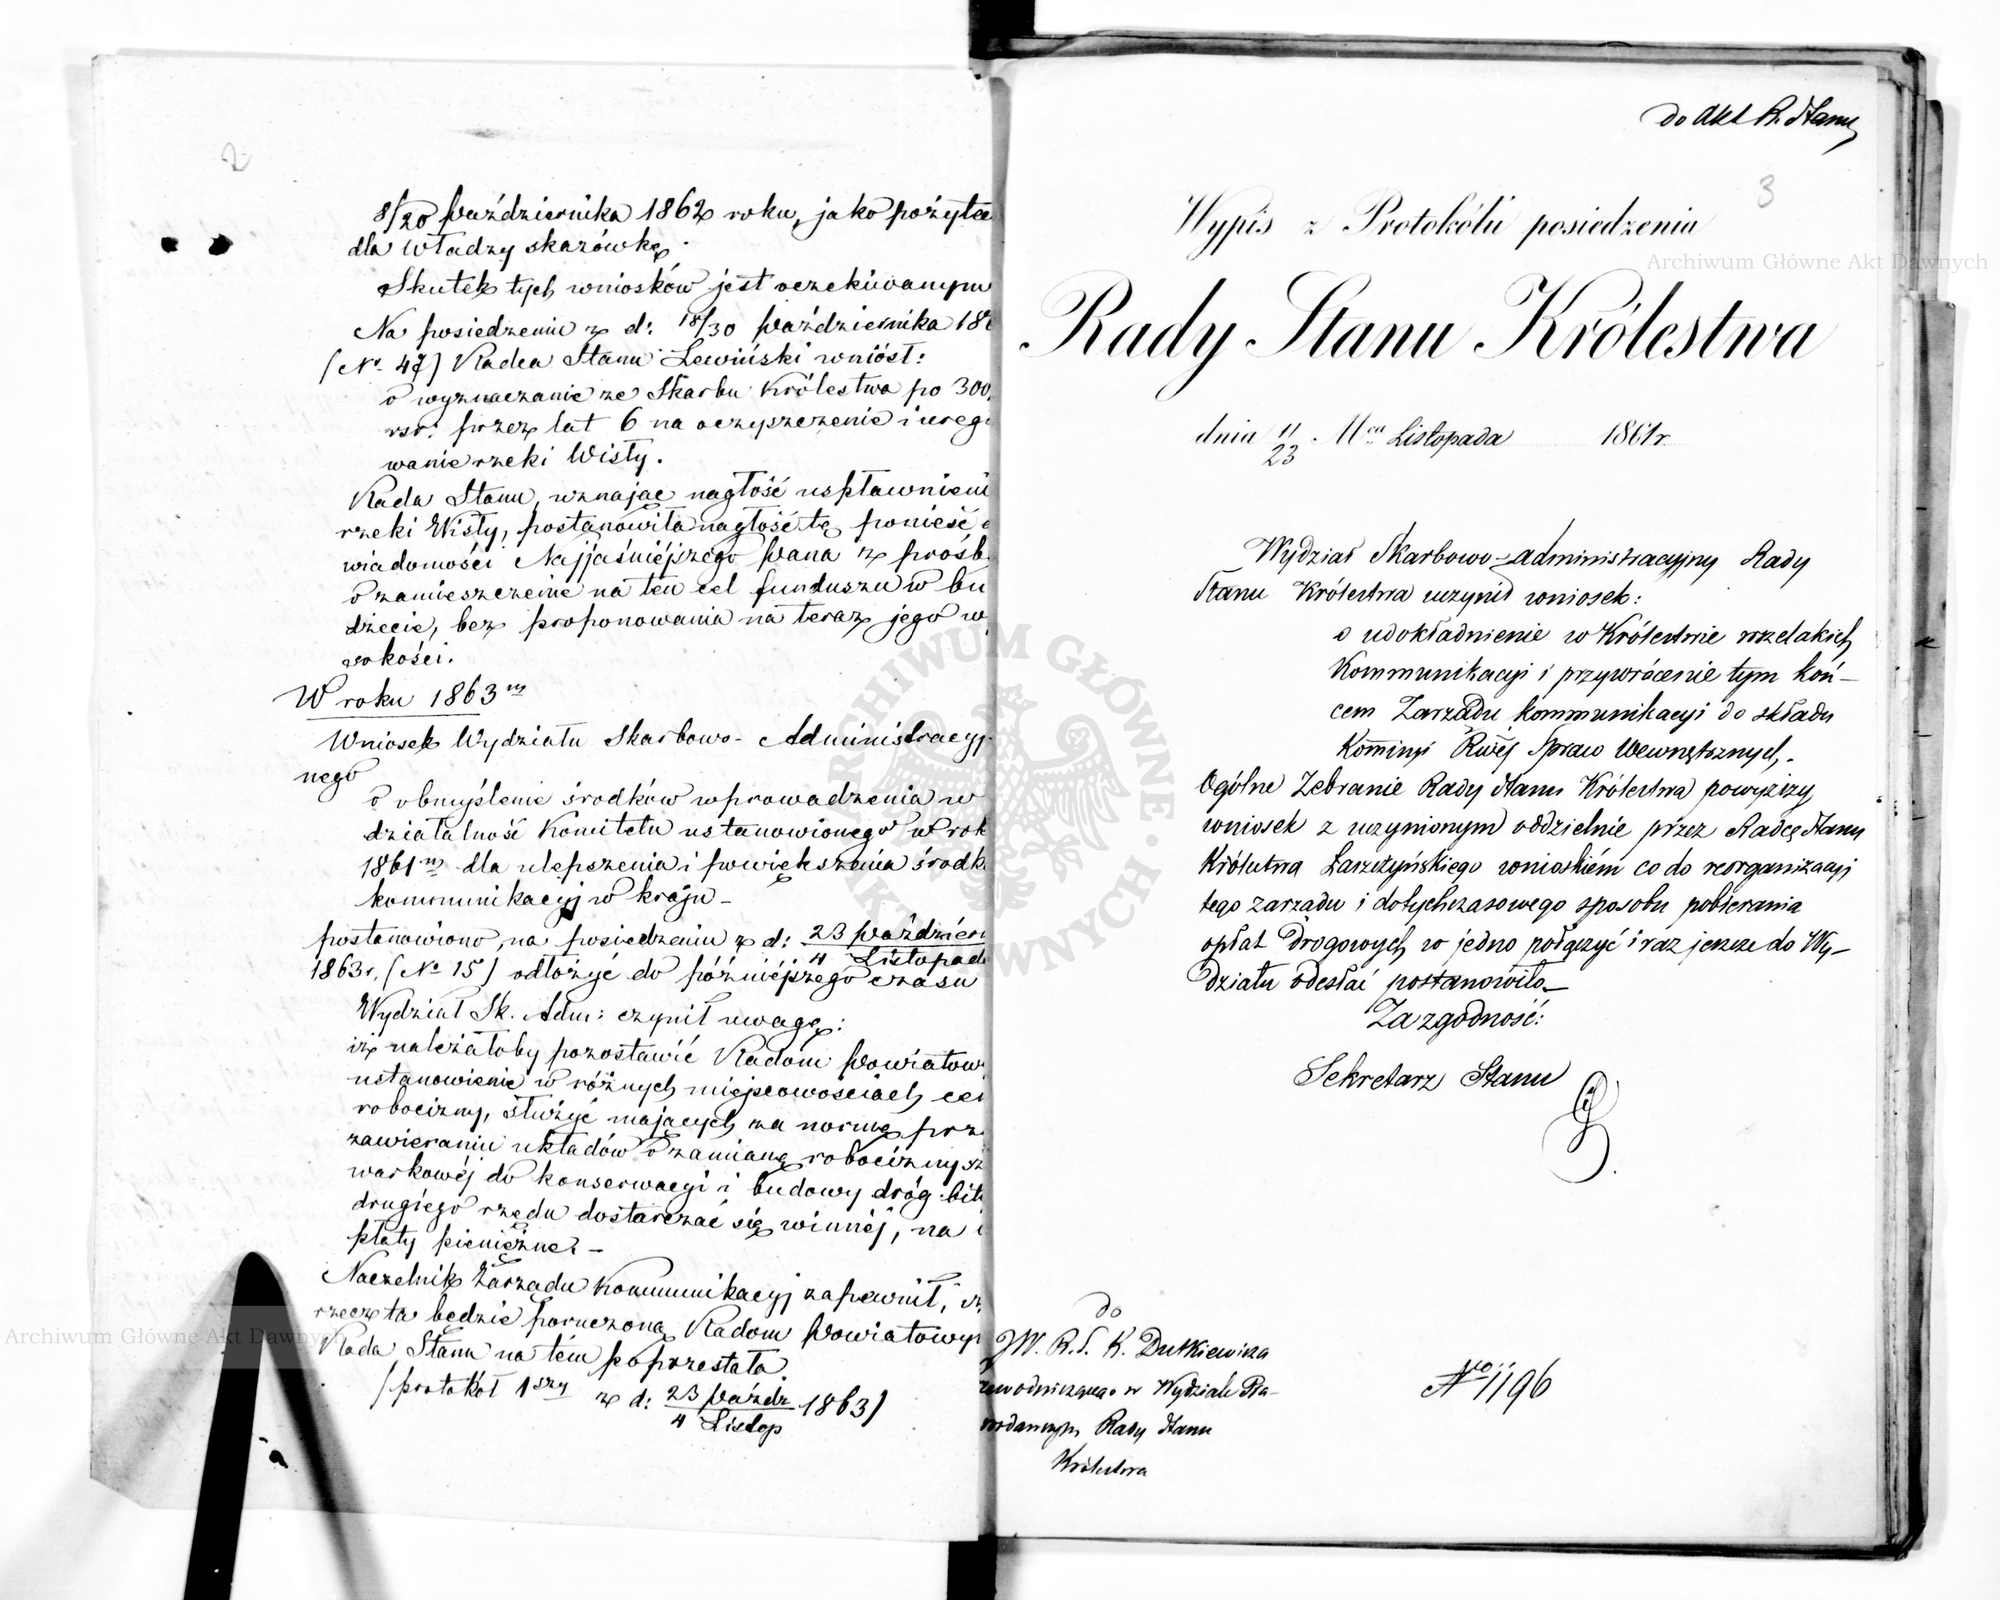 2
8/20 Października 1862 roku, jako pożytec
dla Władzy skazówkę.
Skutek tych wniosków jest oczekiwanym
Na posiedzeniu z d: 18/30 Października 186
(No 47) Radca Stanu Lewiński wniósł:
o wyznaczanie ze Skarbu Królestwa po 300,
rsr: przez lat 6 na oczyszczenie i uregu
wanie rzeki Wisły.
Rada Stanu, uznając nagłość uspławnieni
rzeki Wisły, postanowiła nagłość tę ponieść
wiadomości Najjaśniejszego Pana z prośb
o zamieszczenie na ten cel funduszu w bu
dżecie, bez proponowania na teraz jego w
sokości.
W roku 1863m
Wniosek Wydziału Skarbowo-Administracyj
nego
o obmyślenie środków wprowadzenia w
działalność Komitetu ustanowionego w rok
1861m dla ulepszenia i powiększenia środk
kommunikacyj w kraju –
postanowiono, na posiedzeniu z d: 23 Paździer/4 Listopad
1863r. (No 15) odłożyć do późniejszego czasu
Wydział Sk. Adm: czynił uwagę:
iż należałoby pozostawić Radom Powiatow
ustanowienie w różnych miejscowościach cen
robocizny, służyć mających za normę prz
zawieraniu układów o zamianę robocizny sz
warkowej do konserwacyi i budowy dróg bit
drugiego rzędu dostarczać się winnej, na o
płaty pieniężne. –
Naczelnik Zarządu Kommunikacyj zapewnił, iż
rzecz ta będzie poruczoną Radom Powiatowy
Rada Stanu na tém poprzestała.
(protokół 1szy z d: 23 Paźdz/4 Listop 1863)
do Akt R. Stanu
3
Wypis z Protokółu posiedzenia
Rady Stanu Królestwa
dnia 11/23 Mca Listopada 1861 r.
Wydział Skarbowo-Administracyjny Rady
Stanu Królestwa uczynił wniosek:
o udokładnienie w Królestwie wszelakich
Kommunikacyi i przywrócenie tym koń–
cem Zarządu kommunikacyi do składu
Kommisyi Rwéj Spraw Wewnętrznych,
Ogólne Zebranie Rady Stanu Królestwa powyższy
wniosek z uczynionym oddzielnie przez Radcę Stanu
Królestwa Łaszczyńskiego wnioskiem co do reorganizacyi
tego zarządu i dotychczasowego sposobu pobierania
opłat drogowych w jedno połączyć i raz jeszcze do Wy–
działu odesłać postanowiło.–
Za zgodność:
Sekretarz Stanu
do
JW. R. S. K. Dutkiewicza
zewodniczącego w Wydziale Pra–
wodawczym Rady Stanu
Królestwa
No 1196
Archiwum Główne Akt Dawnych
Archiwum Główne Akt Dawnych
ARCHIWUM GŁÓWNE AKT DAWNYCH